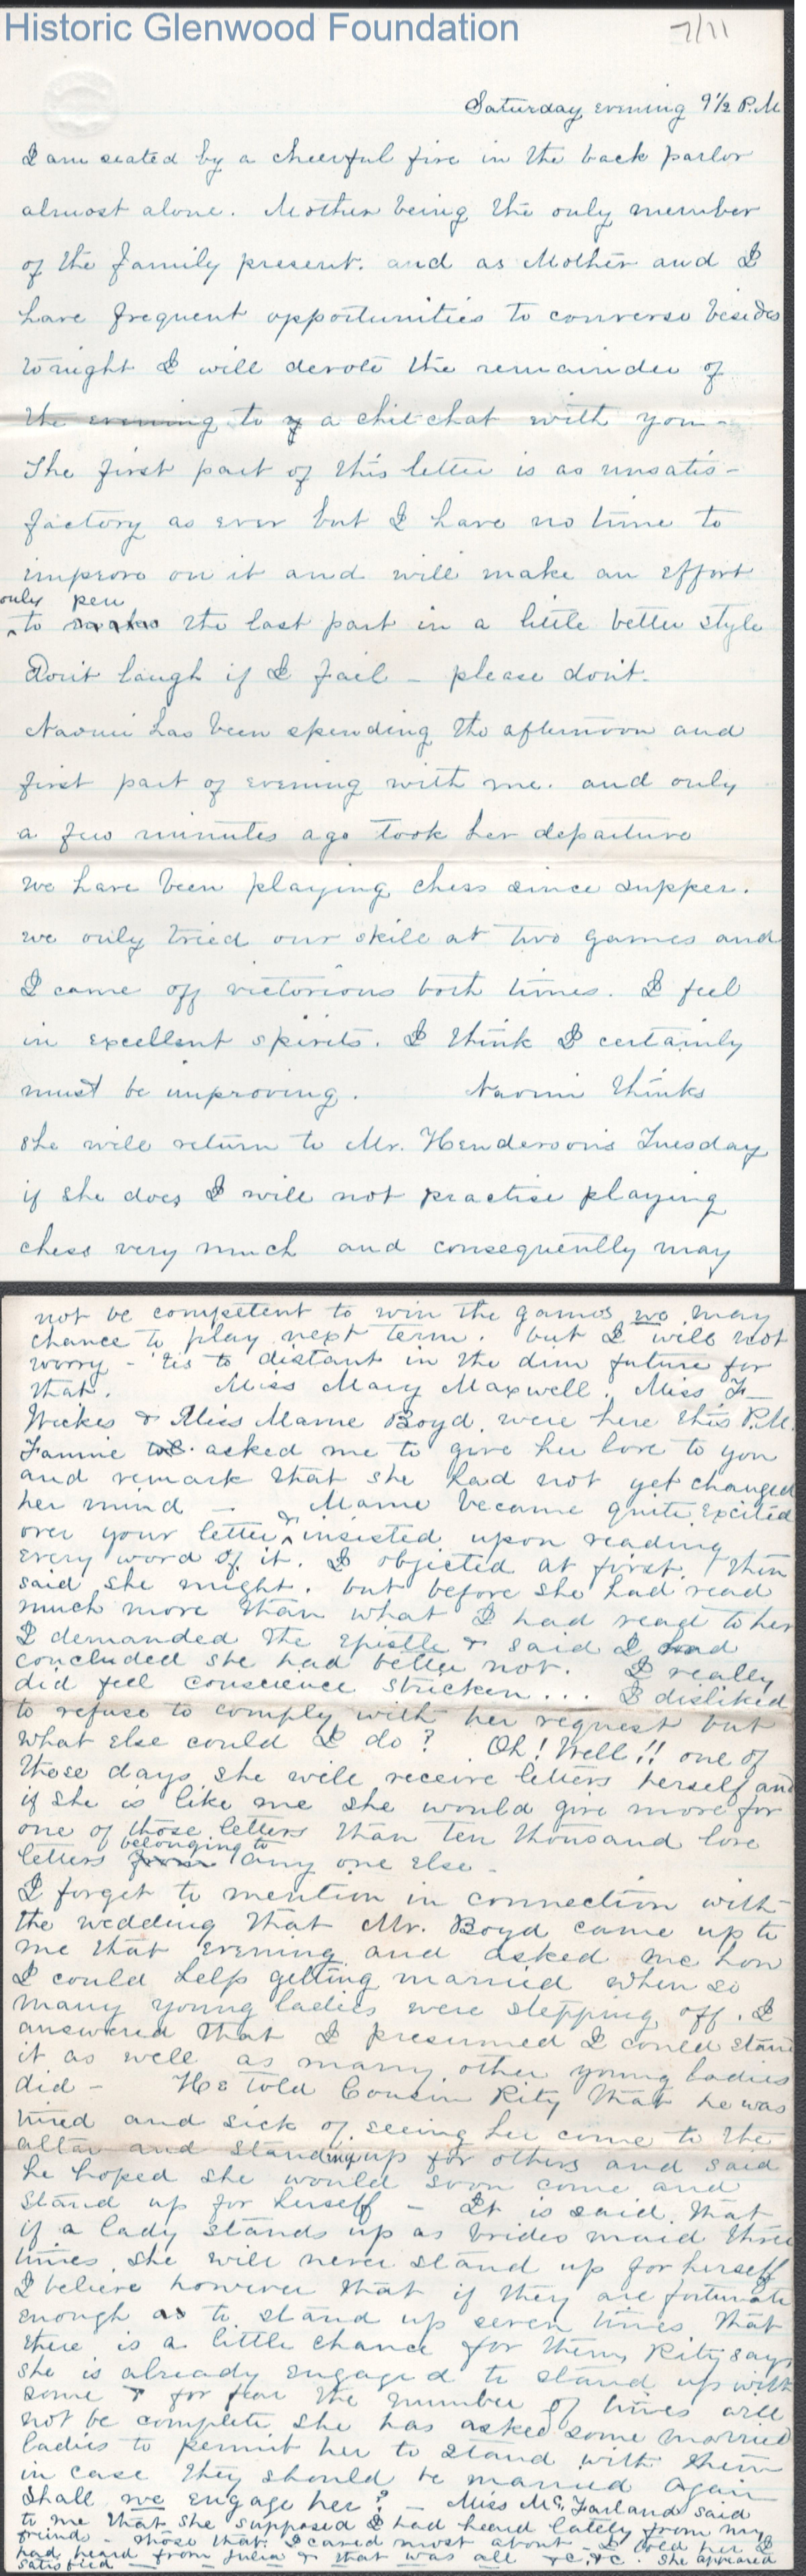 Historic Glenwood Foundation
7/11
Saturday evening 9 1/2 P.M
I am seated by a cheerful fire in the back parlor
almost alone. Mother being the only member
of the family present. and as Mother and I
have frequent opportunities to converse besides
tonight I will devote the remainder of
the evening to y a chit chat with you -
The first part of this letter is as unsatis-
factory as ever but I have no time to
improve on it and will make an effort
only pen
to the last part in a little better style
Don't laugh if I fail - please don't.
Naomi has been spending the afternoon and
first part of evening with me. and only
a few minutes ago took her departure
we have been playing chess since supper.
we only tried our skill at two games and
I came off victorious both times. I feel
in excellent spirits. I think I certainly
must be improving. Naomi thinks
she will return to Mr. Henderson's Tuesday
if she does I will not practise playing
chess very much and consequently may
not be competent to win the games we may
chance to play next term. but I will not
worry - 'tis to distant in the dim future for
that. Miss Mary Maxwell, Miss F-
Wickes & Miss Mame Boyd, were here this P.M.
Fannie asked me to give her love to you
and remark that she had not yet changed
her mind - Mame became quite excited
over your letter & insisted upon reading
every word of it. I objected at first, then
said she might. but before she had read
much more than what I had read to her
I demanded the epistle & said I had
concluded she had better not. I really
did feel conscience stricken... I disliked
to refuse to comply with her request but
what else could I do? Oh! Well!! one of
these days she will receive letters herself and
if she is like me she would give more for
one of those letters than ten thousand love
belonging to
letters from any one else -
I forget to mention in connection with
the wedding that Mr. Boyd came up to
me that evening and asked me how
I could help getting married when so
many young ladies were stepping off. I
answered that I presumed I could stand
it as well as many other young ladies
did - He told Cousin Rity that he was
tired and sick of seeing her come to the
altar and standing up for others and said
he hoped she would soon come and
stand up for herself - It is said that
if a lady stands up as brides maid three
times she will never stand up for herself
I believe however that if they are fortunate
enough as to stand up seven times that
there is a little chance for them, Rity says
she is already engaged to stand up with
some & for fear the number of times will
not be complete she has asked some married
ladies to permit her to stand with them
in case they should be married again
Shall we engage her? - Miss Mc.Farland said
to me that she supposed I had heard lately from my
friends - those that I cared most about - I told her I
had heard from Julia & that was all &c, &c. She appeared
satisfied -